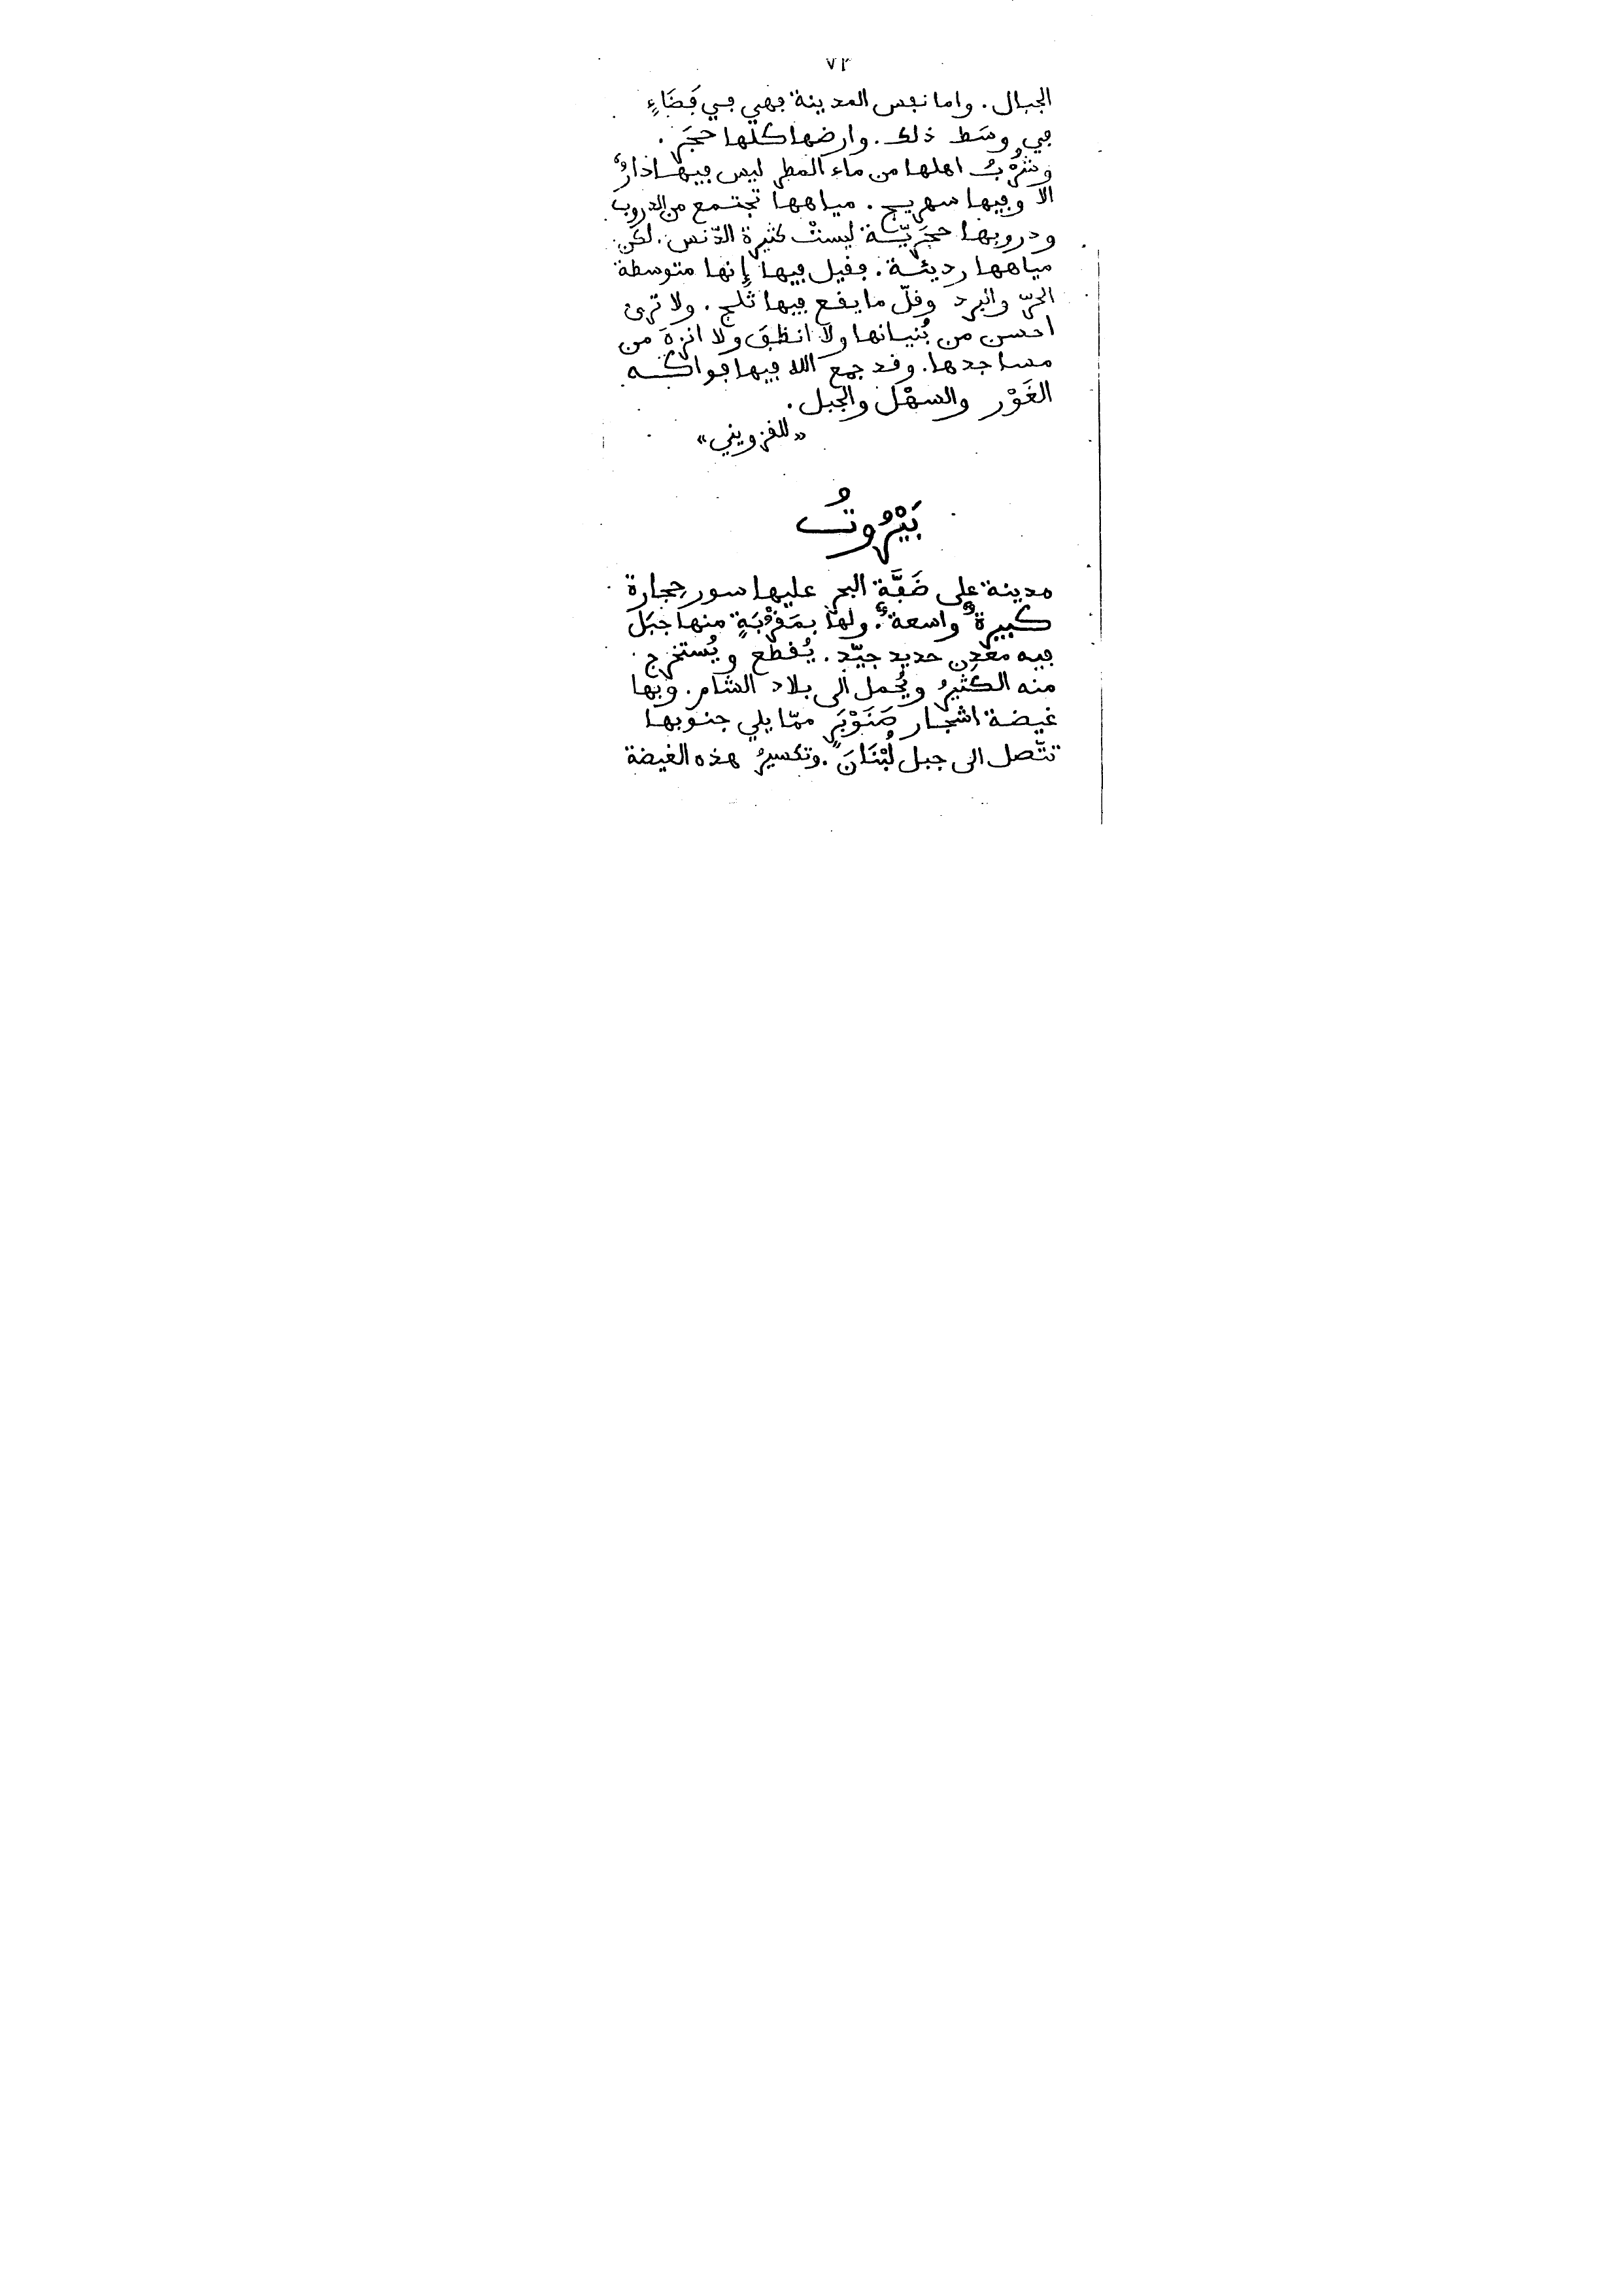 ٧٣
الجبال. واما نفس المدينة فهي في فَضَاءٍ
في وسَط ذلك. وارضها كلّها حجَر.
وشُرْبُ اهلها من ماء المطر ليس فيها دارٌ
الّا وفيها سهريج. مياهها تجتمع من الدروب
ودروبها حجَريّة ليستْ كثيرة الدّنس. لكن
مياهها رديئة. فقيل فيها إنها متوسطة
الحرّ والبرد وقلّ ما يقع فيها ثَلج. ولا ترى
احسن من بُنيانها ولا انظفَ ولا انزهَ من
مساجدها. وقد جمع الله فيها فواكه
الغَوْر والسهْل والجبل.
«للقزويني»
بَيْرُوتُ
مدينة على ضَفَّة البحر عليها سور حِجارة
كبيرةٌ واسعةٌ. ولها بمَقْرُبَةٍ منها جبَل
فيه معْدِن حديد جيّد. يُقطَع ويُستخرج
منه الكَثيرُ ويُحمل الى بلاد الشام. وبها
غيضة اشجار صَنَوْبَرٍ ممّا يلي جنوبها
تتّصل الى جبل لُبْنَانَ. وتكسيرُ هذه الغيضة